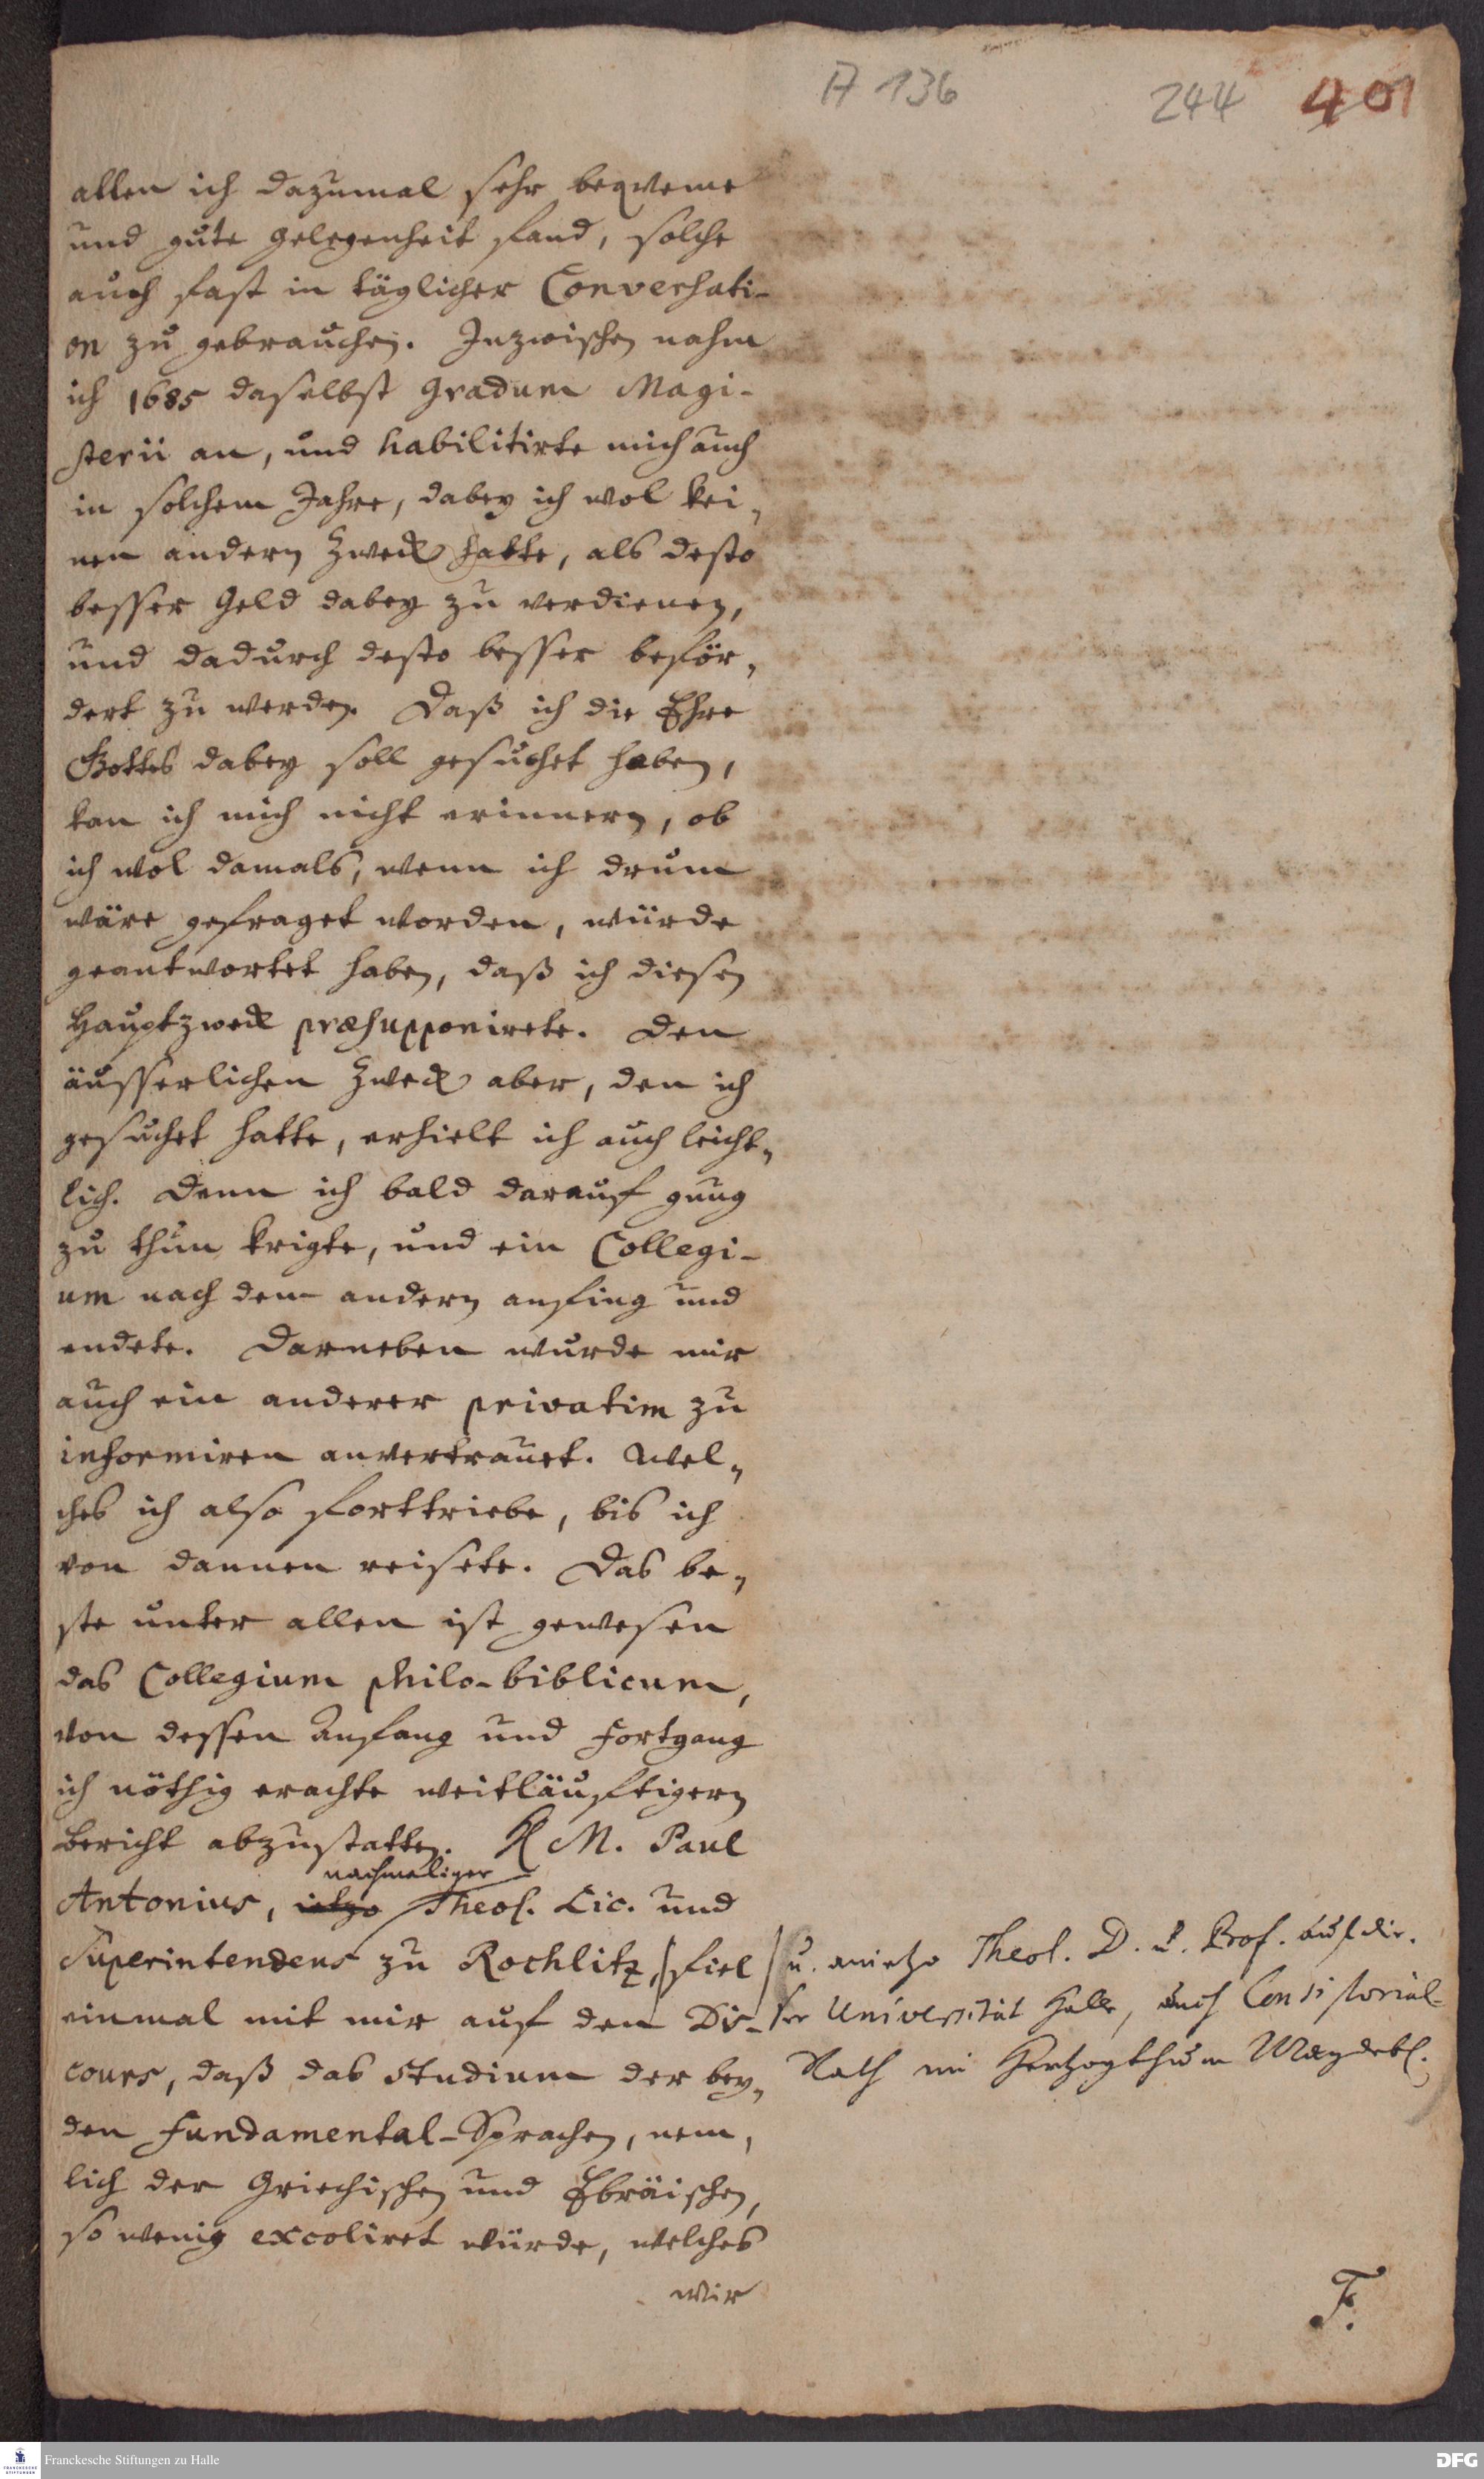 A 136 244 401
allen ich dazumal sehr beqveme
und gute gelegenheit fand, solche
auch fast in täglicher Conversati-
on zu gebrauchen. Inzwischen nahm
ich 1685 daselbst gradum Magi-
sterii an, und habilitirte mich auch
in solchem Jahre, dabey ich wol kei-
nen andern Zweck hatte, als desto
besser Geld dabey zu verdienen,
und dadurch desto besser beför-
dert zu werden. Daß ich die Ehre
Gottes dabey soll gesuchet haben,
kan ich mich nicht erinnern, ob
ich wol damals, wenn ich drum
wäre gefraget worden, würde
geantwortet haben, daß ich diesen
Hauptzweck præsupponirete. Den
äusserlichen Zweck aber, den ich
gesuchet hatte, erhielt ich auch leicht-
lich. Denn ich bald darauf gnug
zu thun krigte, und ein Collegi-
um nach dem andern anfing und
endete. Darneben wurde mir
auch ein anderer privatim zu
informiren anvertrauet. Wel-
ches ich also forttriebe, bis ich
von dannen reisete. Das be-
ste unter allen ist gewesen
das Collegium philo-biblicum,
von dessen Anfang und Fortgang
ich nöthig erachte weitläuftigern
Bericht abzustatten. H M. Paul
nachmaliger
Antonius, itzo Theol. Lic. und
Superintendens zu Rochlitz, fiel
einmal mit mir auf den Dis-
cours, daß das Studium der bey-
den Fundamental-Sprachen, nem-
lich der Griechischen und Ebräischen,
so wenig excoliret würde, welches
wir
u. anietzo Theol. D. u. Prof. auf die-
ser Universität Halle, auch Consistorial-
Rath im Hertzogthum Magdeb.
F.
Franckesche Stiftungen zu Halle
DFG